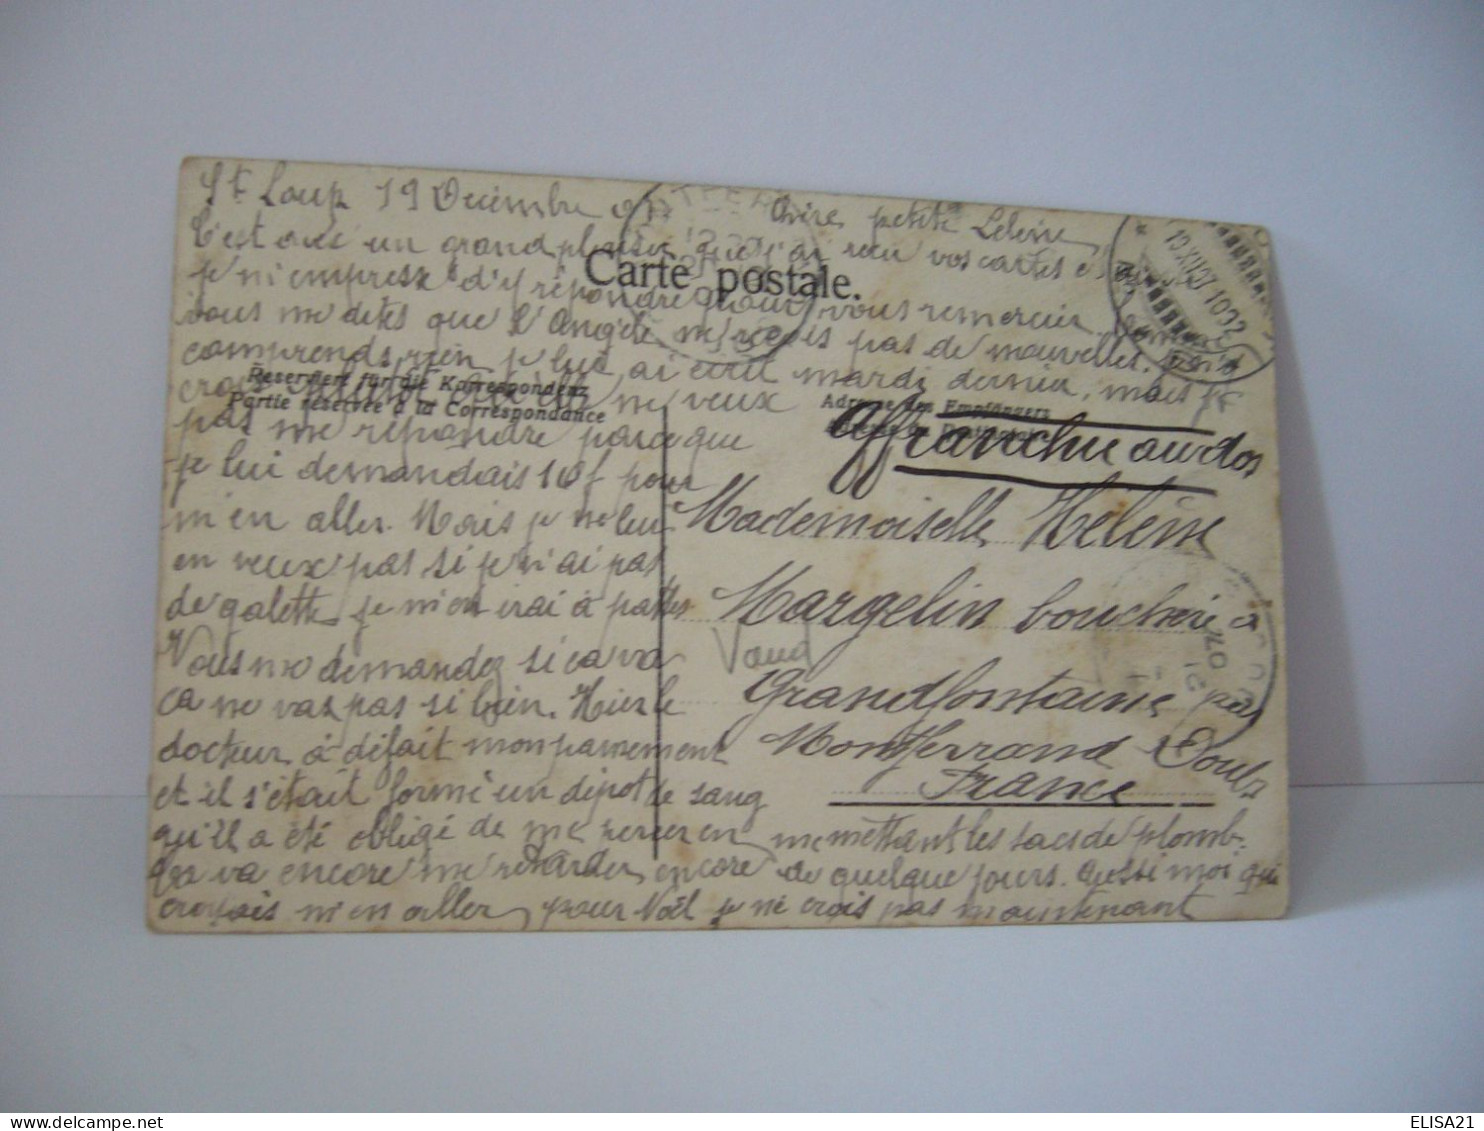 St Loup 19 Décembre 07
Chère petite Hélène
C'est avec un grand plaisir que j'ai reçu vos cartes
je m'empresse d'y répondre pour vous remercier
vous me dites que l'Angèle ne reçois pas de nouvelles.
comprends rien je lui ai écrit mardi dernier, mais je
crois ne veux
pas me répondre parce que
je lui demandais 10f pour
m'en aller. Mais je ne lui
en veux pas si je n'ai pas
de galette je m'en irai à pattes
Vous me demandez si ca va
ca ne vas pas si bien. Hier le
docteur à défait mon pansement
et il s'était formé un dépot de sang
qu'il a été obligé de me percer en me mettant les sacs de plomb.
ça va encore me retarder encore de quelque jours. Aussi moi qui
croyais m'en aller pour Noël je ne crois pas maintenant
Carte postale.
Reserviert für die Korrespondenz
Partie réservée à la Correspondance
Adresse des Empfängers
affranchie au dos
Mademoiselle Hélène
Margelin boucherie à
Vaud
Grandfontaine par
Montferrand Doubs
France
ELISA21